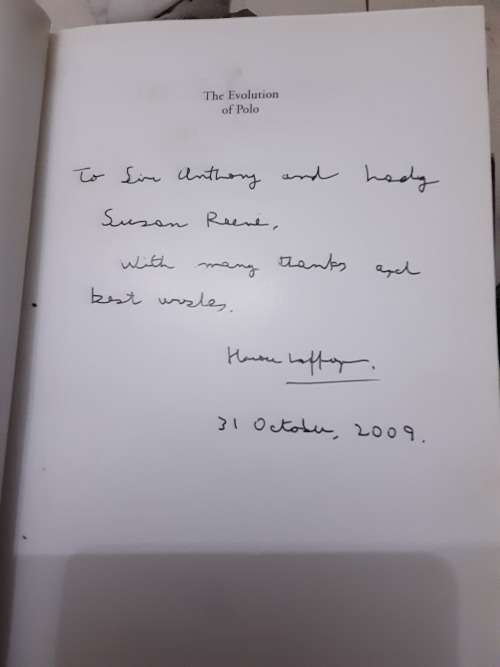 The Evolution
of Polo
To Sir Anthony and Lady
Susan Reeve,
With many thanks and
best wishes.
Horace Laffaye.
31 October, 2009.